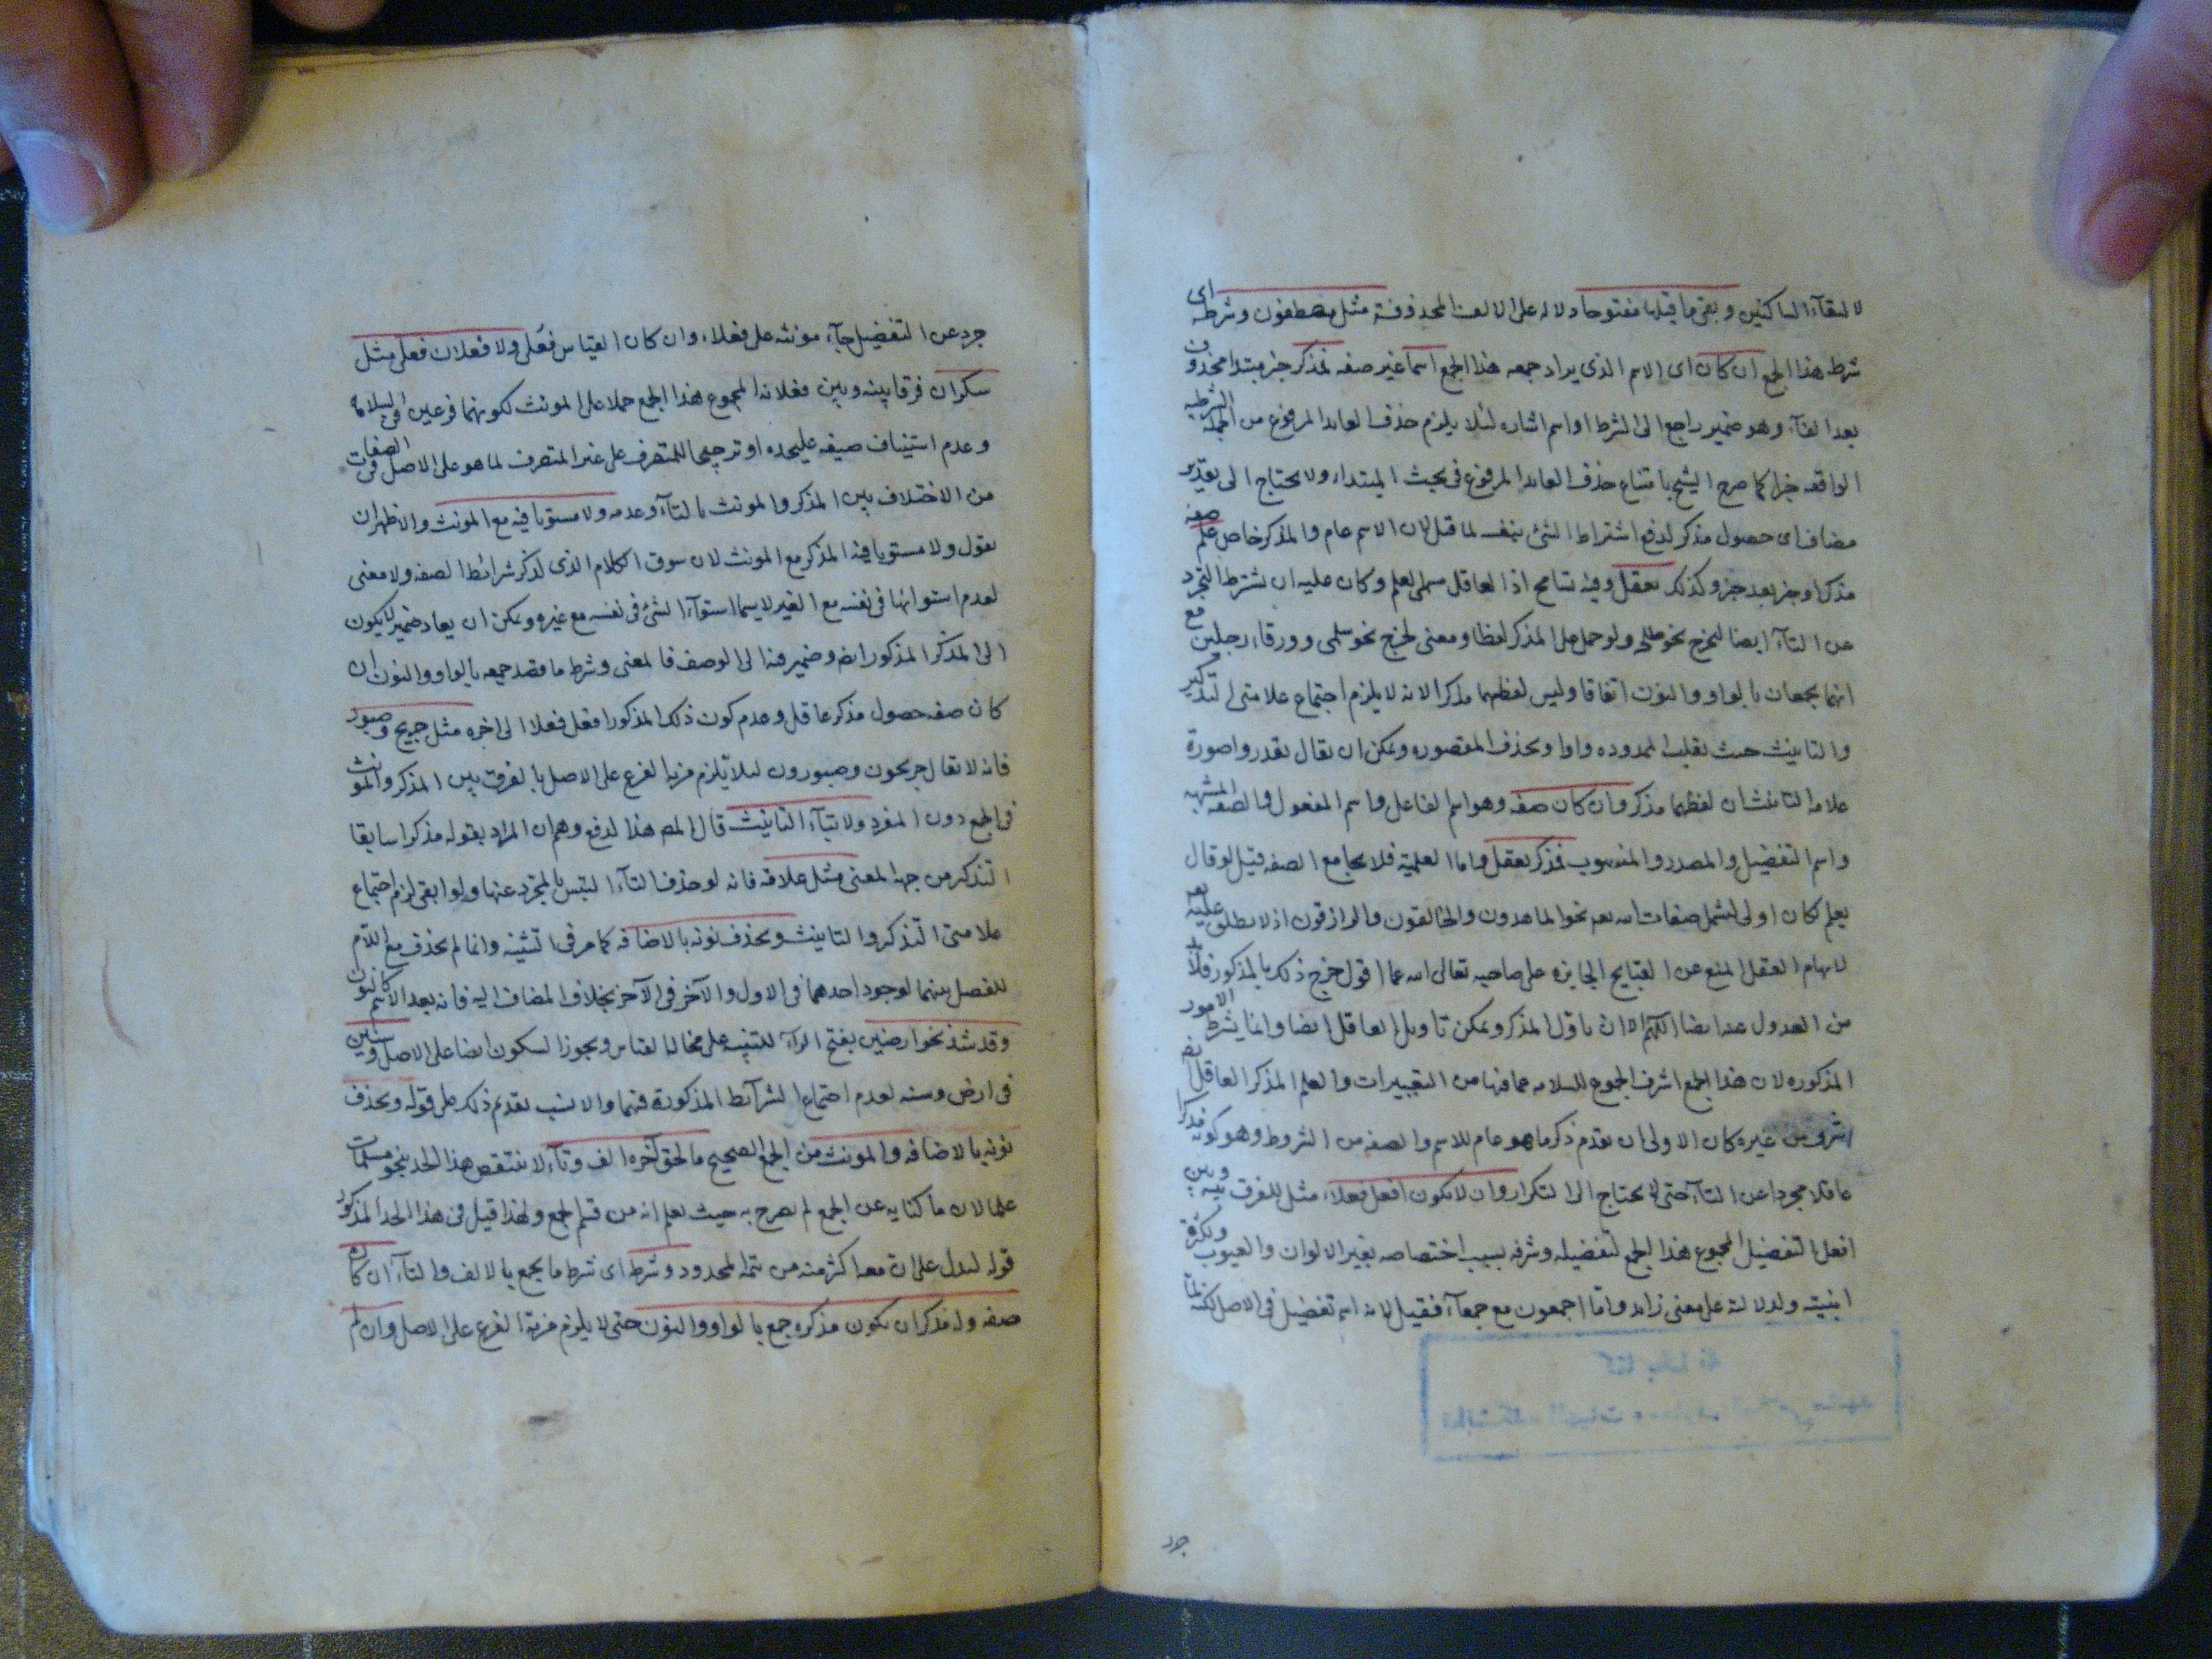 لالتقآء الساكنين وبقى ما قبلها مفتوحا دلاله على الالف المحذوفة مثل مصطفون وشرطه اى
شرط هذا الجمع ان كان اى الاسم الذى يراد جمعه هذا الجمع اسما غير صفه فمذكر خبر مبتدا محذوف
بعد الفآء وهو ضمير راجع الى الشرط او اسم اشاره لئلا يلزم حذف العايد المرفوع من الجملة الشرطيه
الواقعه خبرا كما صرح الشيخ بامتناع حذف العايد المرفوع فى بحث المبتداء ولا يحتاج الى تقدير
مضاف اى حصول مذكر لدفع اشتراط الشئ بنفسه لما قيل لان الاسم عام والمذكر خاص علم صفه
مذكرا وخبر بعد خبر وكذلك يعقل وفيه تسامح اذ العاقل مسمى العلم وكان عليه ان يشترط التجرد
عن التآء ايضا ليخرج نحو طلحه ولو حمل على المذكر لفظا ومعنى لخرج نحو سلمى وورقاء رجلين مع
انهما يجمعان بالواو والنون اتفاقا وليس لفظهما مذكرا لانه لا يلزم اجتماع علامتى التذكير
والتانيث حيث يقلب الممدوده واوا ويحذف المقصوره ويمكن ان يقال تقدر واصورة
علامة التانيث ان لفظهما مذكر وان كان صفه وهو اسم الفاعل واسم المفعول والصفه المشبهه
واسم التفضيل والمصدر والمنسوب فمذكر يعقل واما العلمية فلا يجامع الصفه قيل لو قال
يعلم لكان اولى ليشمل صفات الله نحو الماهدون والخالقون والرازقون اذ لا يطلق عليه
لايهام العقل المنع عن القبايح الجايزه على صاحبه تعالى الله عما اقول خرج ذلك بالمذكور فلا بد
من العدول عنه ايضا اللهم الا ان ياول المذكر ويمكن تاويل العاقل ايضا وانما يشرط الامور
المذكوره لان هذا الجمع اشرف الجموع للسلامه عما فيها من التغييرات والعلم المذكر العاقل
اشرف من غيره كان الاولى ان يقدم ذكر ما هو عام للاسم والصفه من الشروط وهو كونه مذكرا
عاقلا مجردا عن التآء حتى لا يحتاج الى التكرار وان لا يكون افعل فعلاء مثل للفرق بينه وبين
افعل التفضيل المجموع هذا الجمع لتفضيله وشرفه بسبب اختصاصه بغير الالوان والعيوب وبكثرة
ابنيته ولدلالته على معنى زايد واما اجمعون مع جمعآء فقيل لانه اسم تفضيل فى الاصل لكنه لما
جرد
جرد عن التفضيل جآء مونثه على فعلاء وان كان القياس فعلى ولا فعلان فعلى مثل
سكران فرقا بينه وبين فعلانه المجموع هذا الجمع حملا على المونث لكونهما فرعين فى السلامة
وعدم استيناف صيغه عليحده او ترجيحا للمتصرف على غير المتصرف لما هو على الاصل فى الصفات
من الاختلاف بين المذكر والمونث بالتآء وعدمه ولا مستويا فيه مع المونث والاظهر ان
يقول ولا مستويا فيه المذكر مع المونث لان سوق الكلام الذى لذكر شرائط الصفه ولا معنى
لعدم استوائها فى نفسه مع الغير لا سيما استوآء الشئ فى نفسه مع غيره ويمكن ان يعاد ضمير لا يكون
الى المذكر المذكور ايضا وضمير فيه الى الوصف فالمعنى وشرط ما قصد جمعه بالواو والنون ان
كان صفه حصول مذكر عاقل وعدم كون ذلك المذكور افعل فعلاء الى اخره مثل جريح وصبور
فانه لا يقال جريحون وصبورون لئلا يلزم مزية الفرع على الاصل بالفرق بين المذكر والمونث
فى الجمع دون المفرد ولا بتآء التانيث قال المصـ هذا لدفع وهم ان المراد بقوله مذكرا سابقا
التذكير من جهة المعنى مثل علامة فانه لو حذف التآء التبس بالمجرد عنها ولو ابقى لزم اجتماع
علامتى التذكير والتانيث ويحذف نونه بالاضافه كما مر فى التثنيه وانما لم يحذف مع اللام
للفصل بينهما لوجود احدهما فى الاول والآخر فى الآخر بخلاف المضاف اليه فانه بعد الاسم كالنون
وقد شذ نحو ارضين بفتح الرآء للتنبيه على مخالفة القياس ويجوز السكون ايضا على الاصل وسنين
فى ارض وسنه لعدم اجتماع الشرآئط المذكورة فيهما والانسب تقديم ذلك على قوله ويحذف
نونه بالاضافه والمونث من الجمع الصحيح ما لحق آخره الف وتآء لا ينتقض هذا الحد بنحو مسلمات
علما لان ما كنايه عن الجمع لم يصرح به حيث يعلم انه من قسم الجمع ولهذا قيل فى هذا الحد المذكور
قوله ليدل على ان معه اكثر منه من تتمة المحدود وشرطه اى شرط ما يجمع بالالف والتآء ان كان
صفه وله مذكر ان يكون مذكره جمع بالواو والنون حتى لا يلزم مزية الفرع على الاصل وان لم